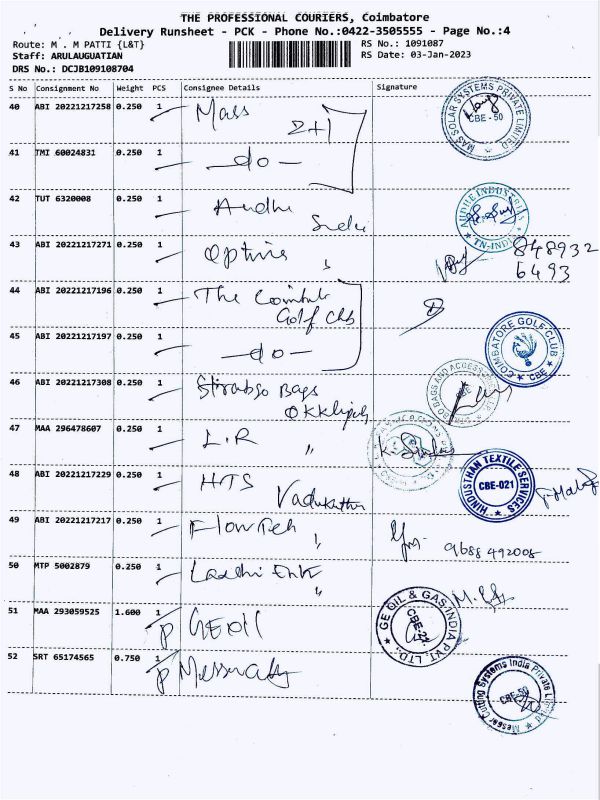 THE PROFESSIONAL COURIERS, Coimbatore
Delivery Runsheet - PCK - Phone No.:0422-3505555 - Page No.:4
Route: M . M PATTI {L&T}
RS No.: 1091087
Staff: ARULAUGUATIAN
RS Date: 03-Jan-2023
DRS No.: DCJB109108704
S No Consignment No Weight PCS Consignee Details Signature
40 ABI 20221217258 0.250 1 Mass 2+1
MAS SOLAR SYSTEMS PRIVATE LIMITED CBE-50
41 TMI 60024831 0.250 1 —do—
42 TUT 6320008 0.250 1 Audhe
AUDHE INDUSTRIES TN-INDIA
43 ABI 20221217271 0.250 1 848932
6493
44 ABI 20221217196 0.250 1 The
Golf
45 ABI 20221217197 0.250 1 —do—
COIMBATORE GOLF CLUB CBE
46 ABI 20221217308 0.250 1 Bags
BAGS AND ACCESSORIES
47 MAA 296478607 0.250 1 L.R "
48 ABI 20221217229 0.250 1 HTS
HINDUSTHAN TEXTILE SERVICES CBE-021
49 ABI 20221217217 0.250 1 9688492008
50 MTP 5002879 0.250 1
51 MAA 293059525 1.600 1 P GEOIL
GE OIL & GAS INDIA PVT. LTD.,
52 SRT 65174565 0.750 1 P
Messer Cutting Systems India Private Limited CBE-50